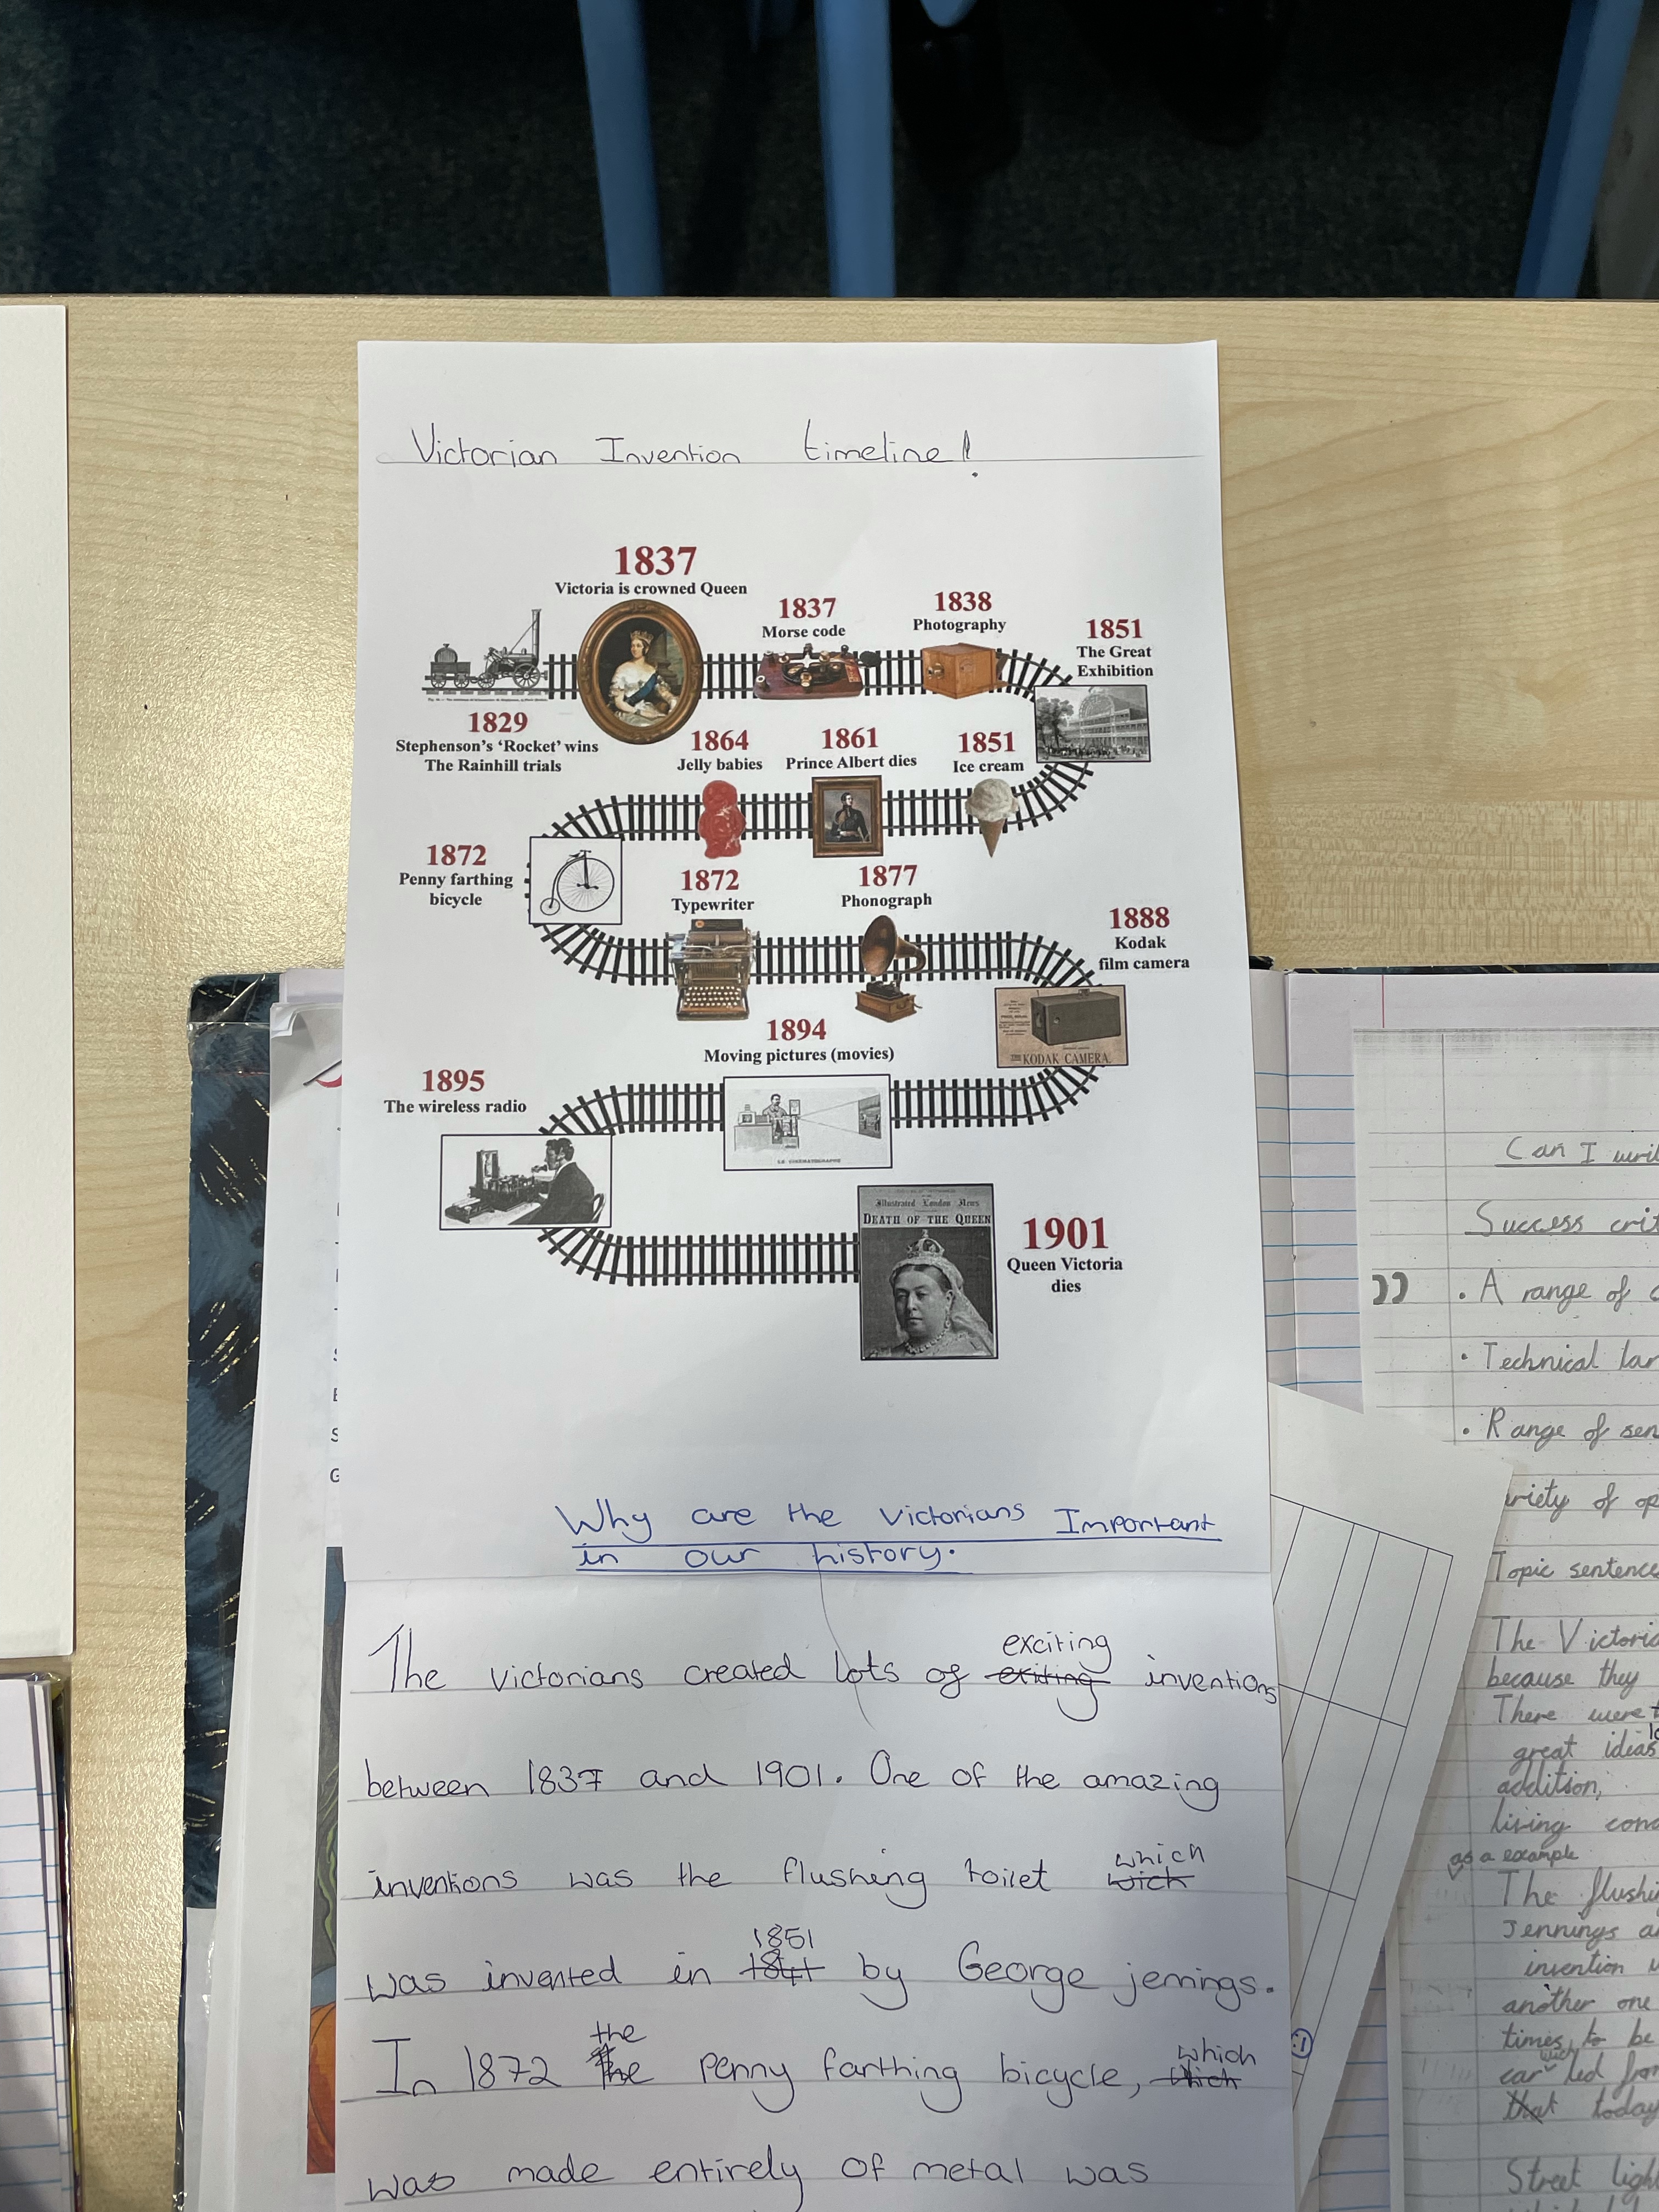 Victorian Invention timeline!
1837
Victoria is crowned Queen
1837
Morse code
1838
Photography
1851
The Great
Exhibition
1829
Stephenson's 'Rocket' wins
The Rainhill trials
1864
Jelly babies
1861
Prince Albert dies
1851
Ice cream
1872
Penny farthing
bicycle
1872
Typewriter
1877
Phonograph
1888
Kodak
film camera
KODAK CAMERA.
1894
Moving pictures (movies)
1895
The wireless radio
Illustrated London News
DEATH OF THE QUEEN
1901
Queen Victoria
dies
Why are the victorians Important
in our history.
The victorians created lots of exiting exciting inventions
between 1837 and 1901. One of the amazing
inventions was the flushing toilet wich which
was invented in 1841 1851 by George jennings.
In 1872 the the Penny farthing bicycle, which
was made entirely of metal was
Can I wri
Success crit
. A range of
• Technical lan
• Range of sen
riety of op
Topic sentence
The Victoria
because they
There were t
great ideas
addition,
living cond
as a example
The flushi
Jennings a
invention
another one
times to be
car led from
that today
Street ligh